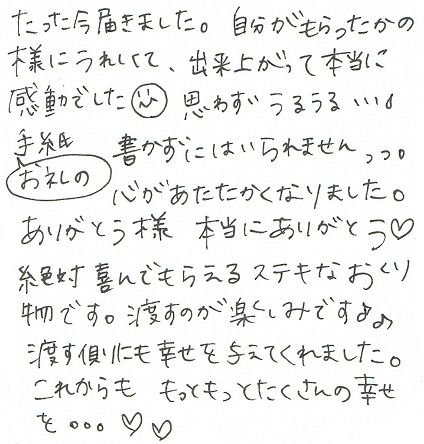 たった今届きました。自分がもらったかの
様にうれしくて、出来上がって本当に
感動でした☺ 思わずうるうる・・・♪
手紙 書かずにはいられませんっっ。
お礼の 心があたたかくなりました。
ありがとう様 本当にありがとう♡
絶対喜んでもらえるステキなおくり
物です。渡すのが楽しみです♪♪
渡す側にも幸せを与えてくれました。
これからも もっともっとたくさんの幸せ
を・・・♡♡